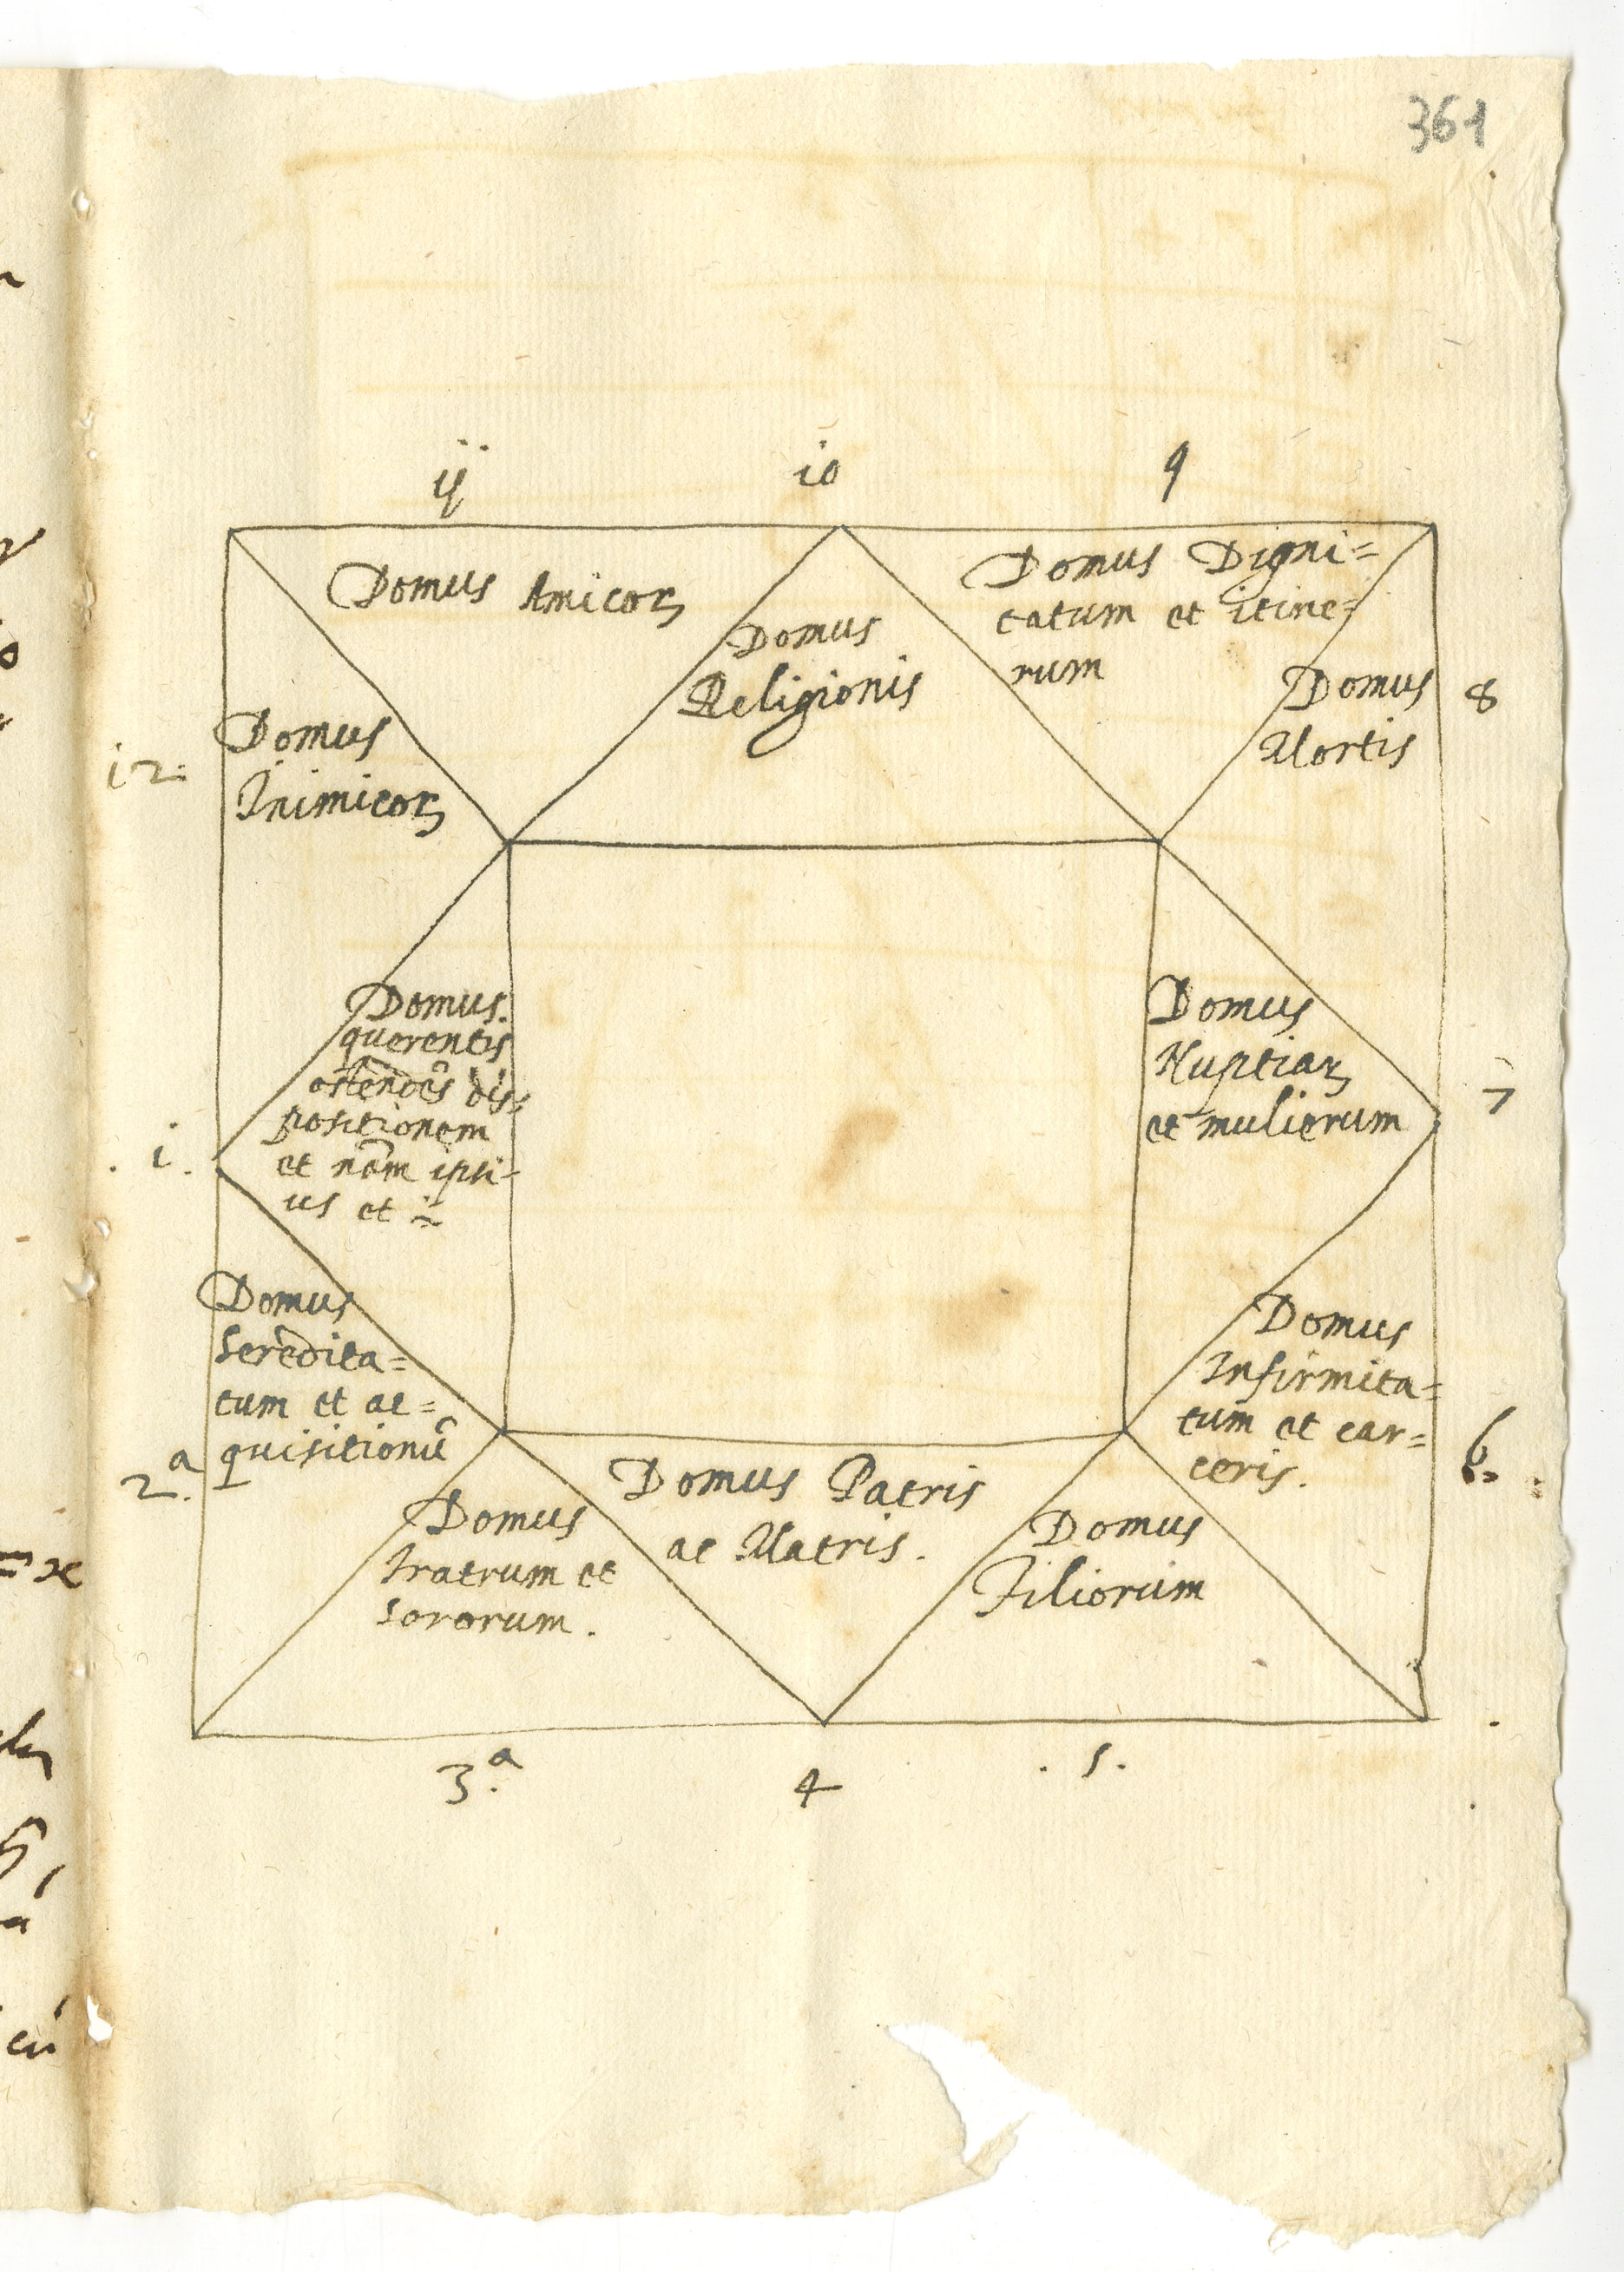 361
ij
io
9
Domus Amicoꝝ
Domus
Religionis
Domus Digni=
tatum et itine=
rum
Domus
Mortis
8
i2:
Domus
Inimicoꝝ
. i.
Domus.
querentis
ostendēs dis=
positionem
et nōm ipsi-
us et
Domus
Nuptiaꝝ
et mulierum
7
2.ª
Domus
heredita=
tum et ac=
quisitionū
Domus
Infirmita=
tum et car=
ceris.
6.
Domus
Fratrum et
sororum.
Domus Patris
ac Matris.
Domus
Filiorum
3.ª
4
. 5.
cū